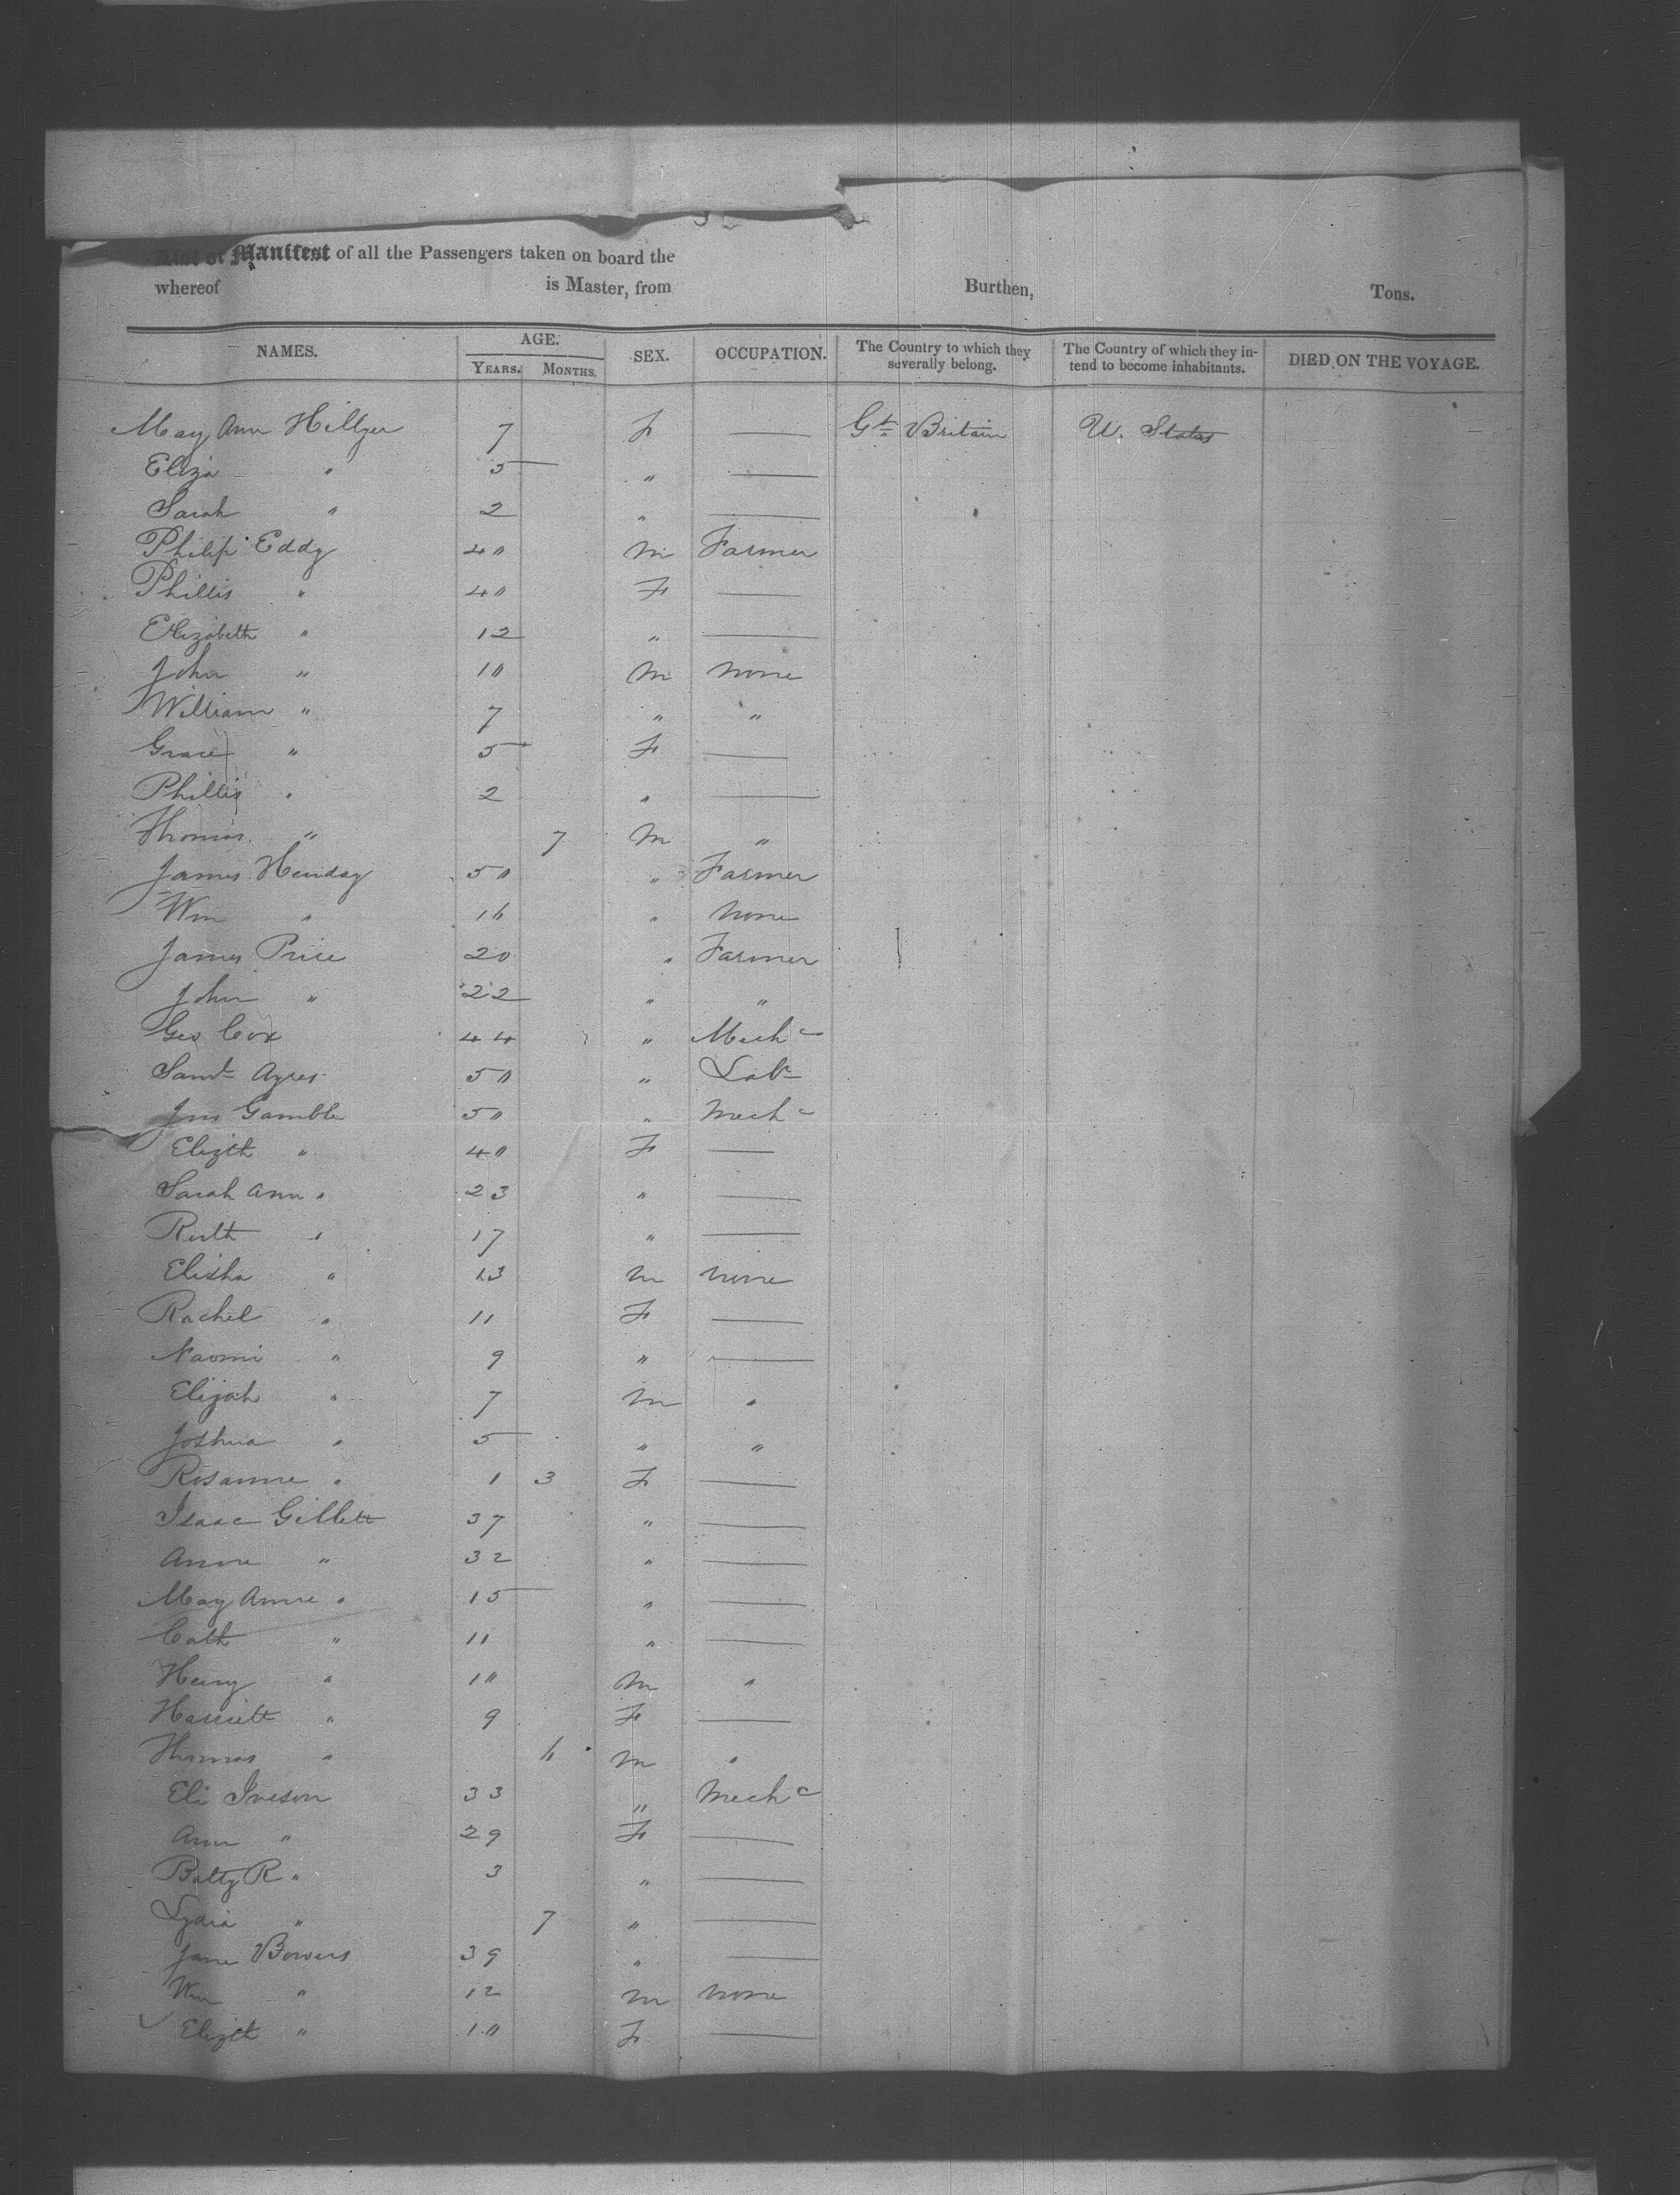 List or Manifest of all the Passengers taken on board the
whereof is Master, from Burthen, Tons.
NAMES. AGE. YEARS. MONTHS. SEX. OCCUPATION. The Country to which they severally belong. The Country of which they intend to become inhabitants. DIED ON THE VOYAGE.
May Ann Hillyer 7 F — Gt Britain U. States
Eliza " 5 " —
Sarah " 2 " —
Philip Eddy 40 M Farmer
Phillis " 40 F —
Elizabeth " 12 " —
John " 10 M None
William " 7 " "
Grace " 5 F —
Phillis " 2 " —
Thomas " 7 M "
James Henday 50 " Farmer
Wm " 16 " None
James Price 20 " Farmer
John " 22 " "
Geo Cox 44 " Mechc
Saml Ayres 50 " Labr
Jno Gamble 50 " Mechc
Elizth " 40 F —
Sarah Ann " 23 " —
Ruth " 17 " —
Elisha " 13 M None
Rachel " 11 F —
Naomi " 9 " —
Elijah " 7 M "
Joshua " 5 " "
Rosanne " 1 3 F —
Isaac Gillett 37 " —
Anne " 32 " —
May Anne " 15 " —
Cath " 11 " —
Henry " 10 M "
Harriett " 9 F —
Thomas " 6 M "
Eli Iveson 33 " Mechc
Ann " 29 F —
Batty R " 3 " —
Lydia " 7 " —
Jane Bowers 39 " —
Wm " 12 M None
Elizth " 10 F —